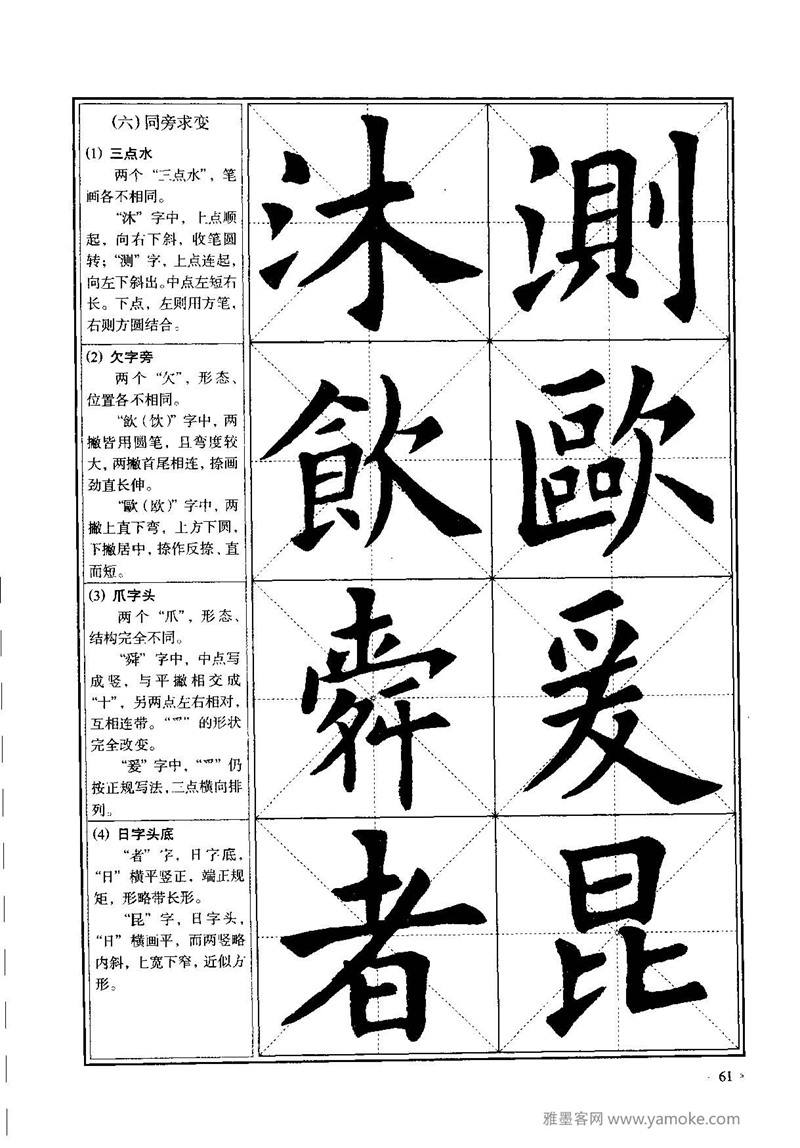 (六)同旁求变
(1) 三点水
两个“三点水”，笔
画各不相同。
“沐”字中，上点顺
起，向右下斜，收笔圆
转；“测”字，上点连起，
向左下斜出。中点左短右
长。下点，左则用方笔，
右则方圆结合。
沐 測
(2) 欠字旁
两个“欠”，形态、
位置各不相同。
“飲（饮）”字中，两
撇皆用圆笔，且弯度较
大，两撇首尾相连，捺画
劲直长伸。
“歐（欧）”字中，两
撇上直下弯，上方下圆，
下撇居中，捺作反捺、直
而短。
飲 歐
(3) 爪字头
两个“爪”，形态、
结构完全不同。
“舜”字中，中点写
成竖，与平撇相交成
“十”，另两点左右相对，
互相连带。“爫”的形状
完全改变。
“爰”字中，“爫”仍
按正规写法，三点横向排
列。
舜 爰
(4) 日字头底
“者”字，日字底，
“日”横平竖正，端正规
矩，形略带长形。
“昆”字，日字头，
“日”横画平，而两竖略
内斜，上宽下窄，近似方
形。
者 昆
61
雅墨客网 www.yamoke.com